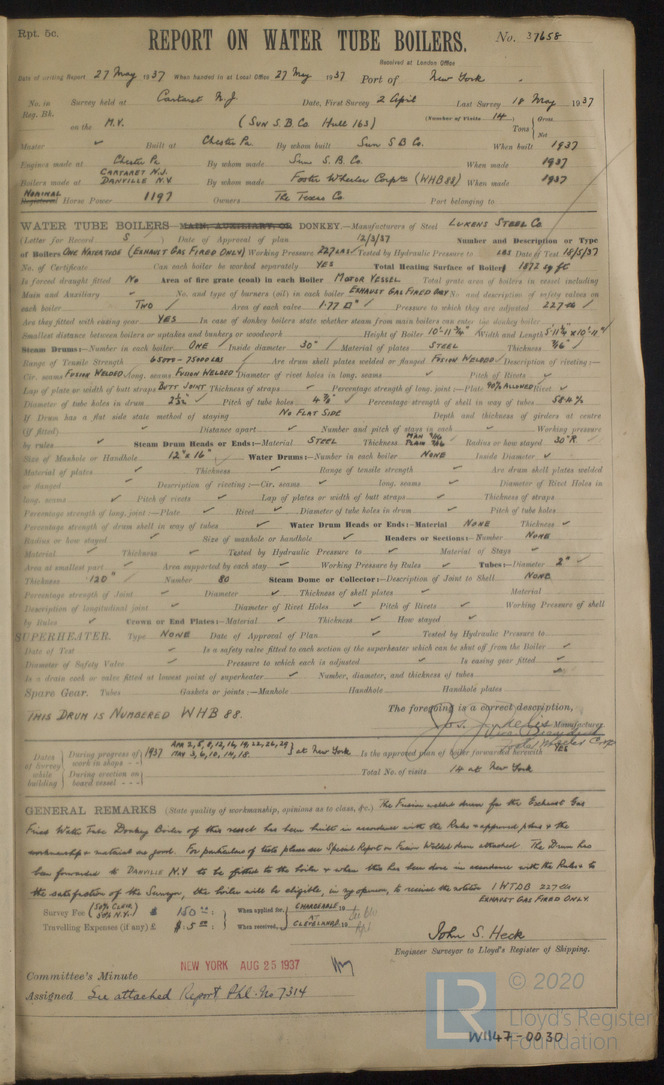 Rpt. 5c.
REPORT ON WATER TUBE BOILERS.
No. 37658
Received at London Office
Date of writing Report 27 May 1937 When handed in at Local Office 27 May 1937 Port of New York
No. in Reg. Bk. Survey held at Carteret N.J Date, First Survey 2 April Last Survey 18 May 1937
(Number of Visits 14)
on the M.V. (Sun S.B. Co Hull 163) Tons Gross Net
Master Built at Chester Pa By whom built Sun S B Co. When built 1937
Engines made at Chester Pa By whom made Sun S.B. Co. When made 1937
Boilers made at CARTARET N.J. DANVILLE N.Y. By whom made Foster Wheeler Corpn (WHB 88) When made 1937
NOMINAL Registered Horse Power 1197 Owners The Texas Co Port belonging to
WATER TUBE BOILERS MAIN, AUXILIARY, OR DONKEY.—Manufacturers of Steel LUKENS STEEL CO
(Letter for Record S) Date of Approval of plan 12/3/37 Number and Description or Type
of Boilers ONE WATER TUBE (EXHAUST GAS FIRED ONLY) Working Pressure 227 LBS Tested by Hydraulic Pressure to LBS Date of Test 18/5/37
No. of Certificate Can each boiler be worked separately YES Total Heating Surface of Boilers 1872 sq ft
Is forced draught fitted NO Area of fire grate (coal) in each Boiler MOTOR VESSEL Total grate area of boilers in vessel including
Main and Auxiliary No. and type of burners (oil) in each boiler EXHAUST GAS FIRED ONLY No. and description of safety valves on
each boiler TWO Area of each valve 1.77 □" Pressure to which they are adjusted 227
Are they fitted with easing gear YES In case of donkey boilers state whether steam from main boilers can enter the donkey boiler
Smallest distance between boilers or uptakes and bunkers or woodwork Height of Boiler 10'-11 3/4" Width and Length 5'-11 1/4" x 10'-11"
Steam Drums:—Number in each boiler ONE Inside diameter 30" Material of plates STEEL Thickness 7/16"
Range of Tensile Strength 65000-75000 LBS Are drum shell plates welded or flanged FUSION WELDED Description of riveting:—
Cir. seams FUSION WELDED long. seams FUSION WELDED Diameter of rivet holes in long. seams Pitch of Rivets
Lap of plate or width of butt straps BUTT JOINT Thickness of straps Percentage strength of long. joint:—Plate 90% ALLOWED Rivet
Diameter of tube holes in drum Pitch of tube holes Percentage strength of shell in way of tubes
If Drum has a flat side state method of staying NO FLAT SIDE Depth and thickness of girders at centre
(if fitted) Distance apart Number and pitch of stays in each Working pressure
by rules Steam Drum Heads or Ends:—Material STEEL Thickness Radius or how stayed 30" R
Size of Manhole or Handhole 12" x 16" Water Drums:—Number in each boiler NONE Inside Diameter
Material of plates Thickness Range of tensile strength Are drum shell plates welded
or flanged Description of riveting:—Cir. seams long. seams Diameter of Rivet Holes in
long. seams Pitch of rivets Lap of plates or width of butt straps Thickness of straps
Percentage strength of long. joint:—Plate Rivet Diameter of tube holes in drum Pitch of tube holes
Percentage strength of drum shell in way of tubes Water Drum Heads or Ends:—Material NONE Thickness
Radius or how stayed Size of manhole or handhole Headers or Sections:—Number NONE
Material Thickness Tested by Hydraulic Pressure to Material of Stays
Area at smallest part Area supported by each stay Working Pressure by Rules Tubes:—Diameter 2"
Thickness .120" Number 80 Steam Dome or Collector:—Description of Joint to Shell NONE
Percentage strength of Joint Diameter Thickness of shell plates Material
Description of longitudinal joint Diameter of Rivet Holes Pitch of Rivets Working Pressure of shell
by Rules Crown or End Plates:—Material Thickness How stayed
SUPERHEATER. Type NONE Date of Approval of Plan Tested by Hydraulic Pressure to
Date of Test Is a safety valve fitted to each section of the superheater which can be shut off from the Boiler
Diameter of Safety Valve Pressure to which each is adjusted Is easing gear fitted
Is a drain cock or valve fitted at lowest point of superheater Number, diameter, and thickness of tubes
Spare Gear. Tubes Gaskets or joints:—Manhole Handhole Handhole plates
THIS DRUM IS NUMBERED WHB 88. The foregoing is a correct description,
Manufacturer.
Foster Wheeler Corp
Dates of Survey while building During progress of work in shops -- 1937 APR 2, 5, 8, 12, 16, 19, 22, 26, 29 MAY 3, 6, 10, 14, 18. at New York Is the approved plan of boiler forwarded herewith YES
During erection on board vessel --- Total No. of visits 14 at New York
GENERAL REMARKS (State quality of workmanship, opinions as to class, &c.) The Fusion welded drum for the Exhaust Gas
Fired Water Tube Donkey Boiler of this vessel has been built in accordance with the Rules & approved plans & the
workmanship & material are good. For particulars of tests please see Special Report on Fusion Welded drum attached The Drum has
been forwarded to DANVILLE N.Y to be fitted to the boiler & when this has been done in accordance with the Rules & to
the satisfaction of the Surveyor, this boiler will be eligible, in my opinion, to receive the notation 1 WTDB 227 lbs
EXHAUST GAS FIRED ONLY.
Survey Fee (50% CLEV. 50% N.Y.) $ 150 00 : When applied for, CHARGEABLE 19
Travelling Expenses (if any) £ $ : 5 00 : When received, AT CLEVELAND 19
John S. Heck
Engineer Surveyor to Lloyd's Register of Shipping.
NEW YORK AUG 25 1937
Committee's Minute
Assigned See attached Report Phl. No 7314
© 2020
LR
Lloyd's Register
Foundation
W1147-0030